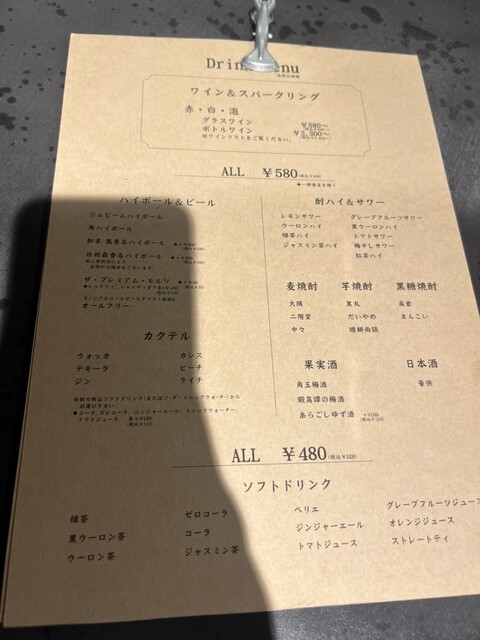 Drin enu
ワイン＆スパークリング
赤・白・泡
グラスワイン ¥580〜
ボトルワイン ¥3,300〜
※ワインリストをご覧ください。
ALL ¥580
◆一部商品を除く
ハイボール＆ビール
ジムビームハイボール
角ハイボール
知多 風香るハイボール
白州森香るハイボール
ザ・プレミアム・モルツ
オールフリー
カクテル
ウォッカ カシス
テキーラ ピーチ
ジン ライチ
お選び下さい。
◆コーラ、ゼロコーラ、ジンジャーエール、トニックウォーター、
トマトジュース
酎ハイ＆サワー
レモンサワー グレープフルーツサワー
ウーロンハイ 黒ウーロンハイ
緑茶ハイ トマトサワー
ジャスミン茶ハイ 梅干しサワー
紅茶ハイ
麦焼酎 芋焼酎 黒糖焼酎
大隅 黒丸
二階堂 だいやめ まんこい
中々 晴耕雨読
果実酒 日本酒
角玉梅酒
あらごしゆず酒 +¥100
ALL ¥480 (税込¥528)
ソフトドリンク
緑茶 ゼロコーラ ペリエ グレープフルーツジュース
黒ウーロン茶 コーラ ジンジャーエール オレンジジュース
ウーロン茶 ジャスミン茶 トマトジュース ストレートティ